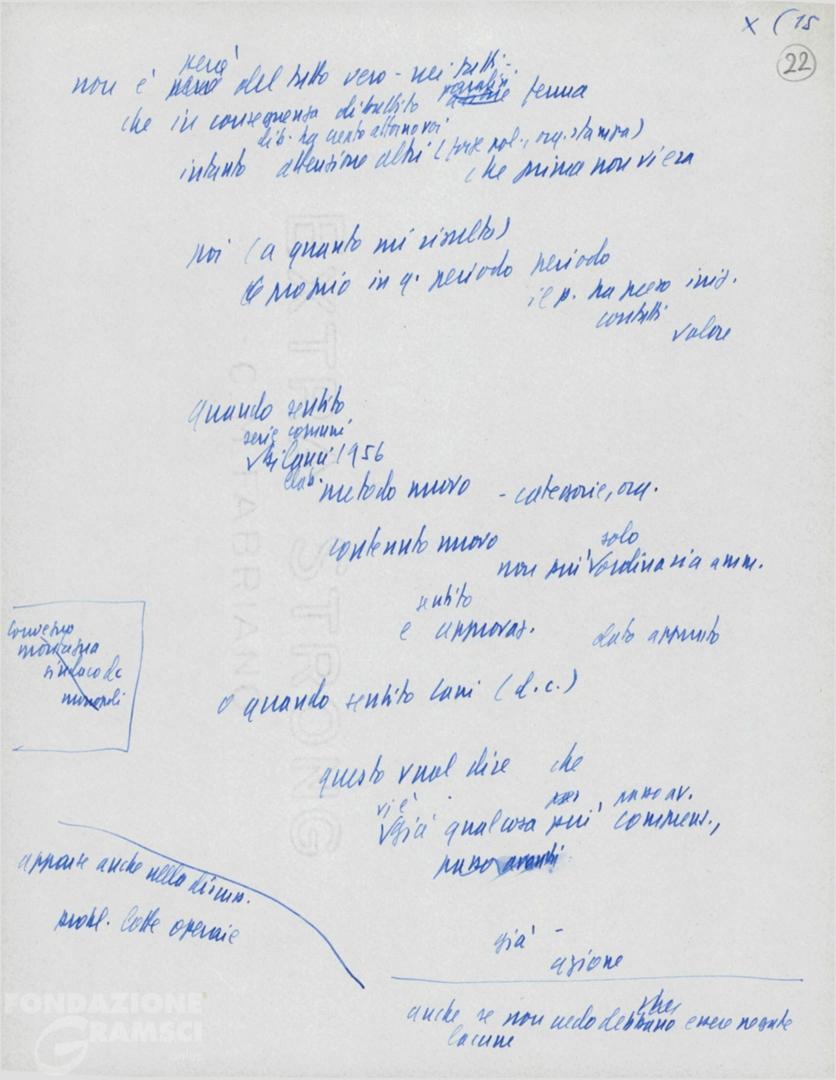 x (15
22
però
non è del tutto vero - nei fatti -
paralisi
che in conseguenza dibattito ferma
dib. ha creato attorno noi
intanto attenzione altri (forze pol., org. stampa)
che prima non vi era
noi (a quanto mi risulta)
è proprio in q. periodo periodo
il p. ha preso iniz.
contatti
valore
quando sentito
serie comuni
bilanci 1956
elab.
metodo nuovo - categorie, org.
contenuto nuovo solo
non più ordinaria amm.
sentito
e approvaz. dato appunto
convegno
sindaco dc
monopoli
o quando sentito Lami (d.c.)
questo vuol dire che
vi è passo av.
già qualcosa più comprens.,
passo avanti
appare anche nella discuss.
probl. lotte operaie
già -
azione
anche se non credo debbano essere negate
lacune
FONDAZIONE
GRAMSCI
EXTRA STRONG